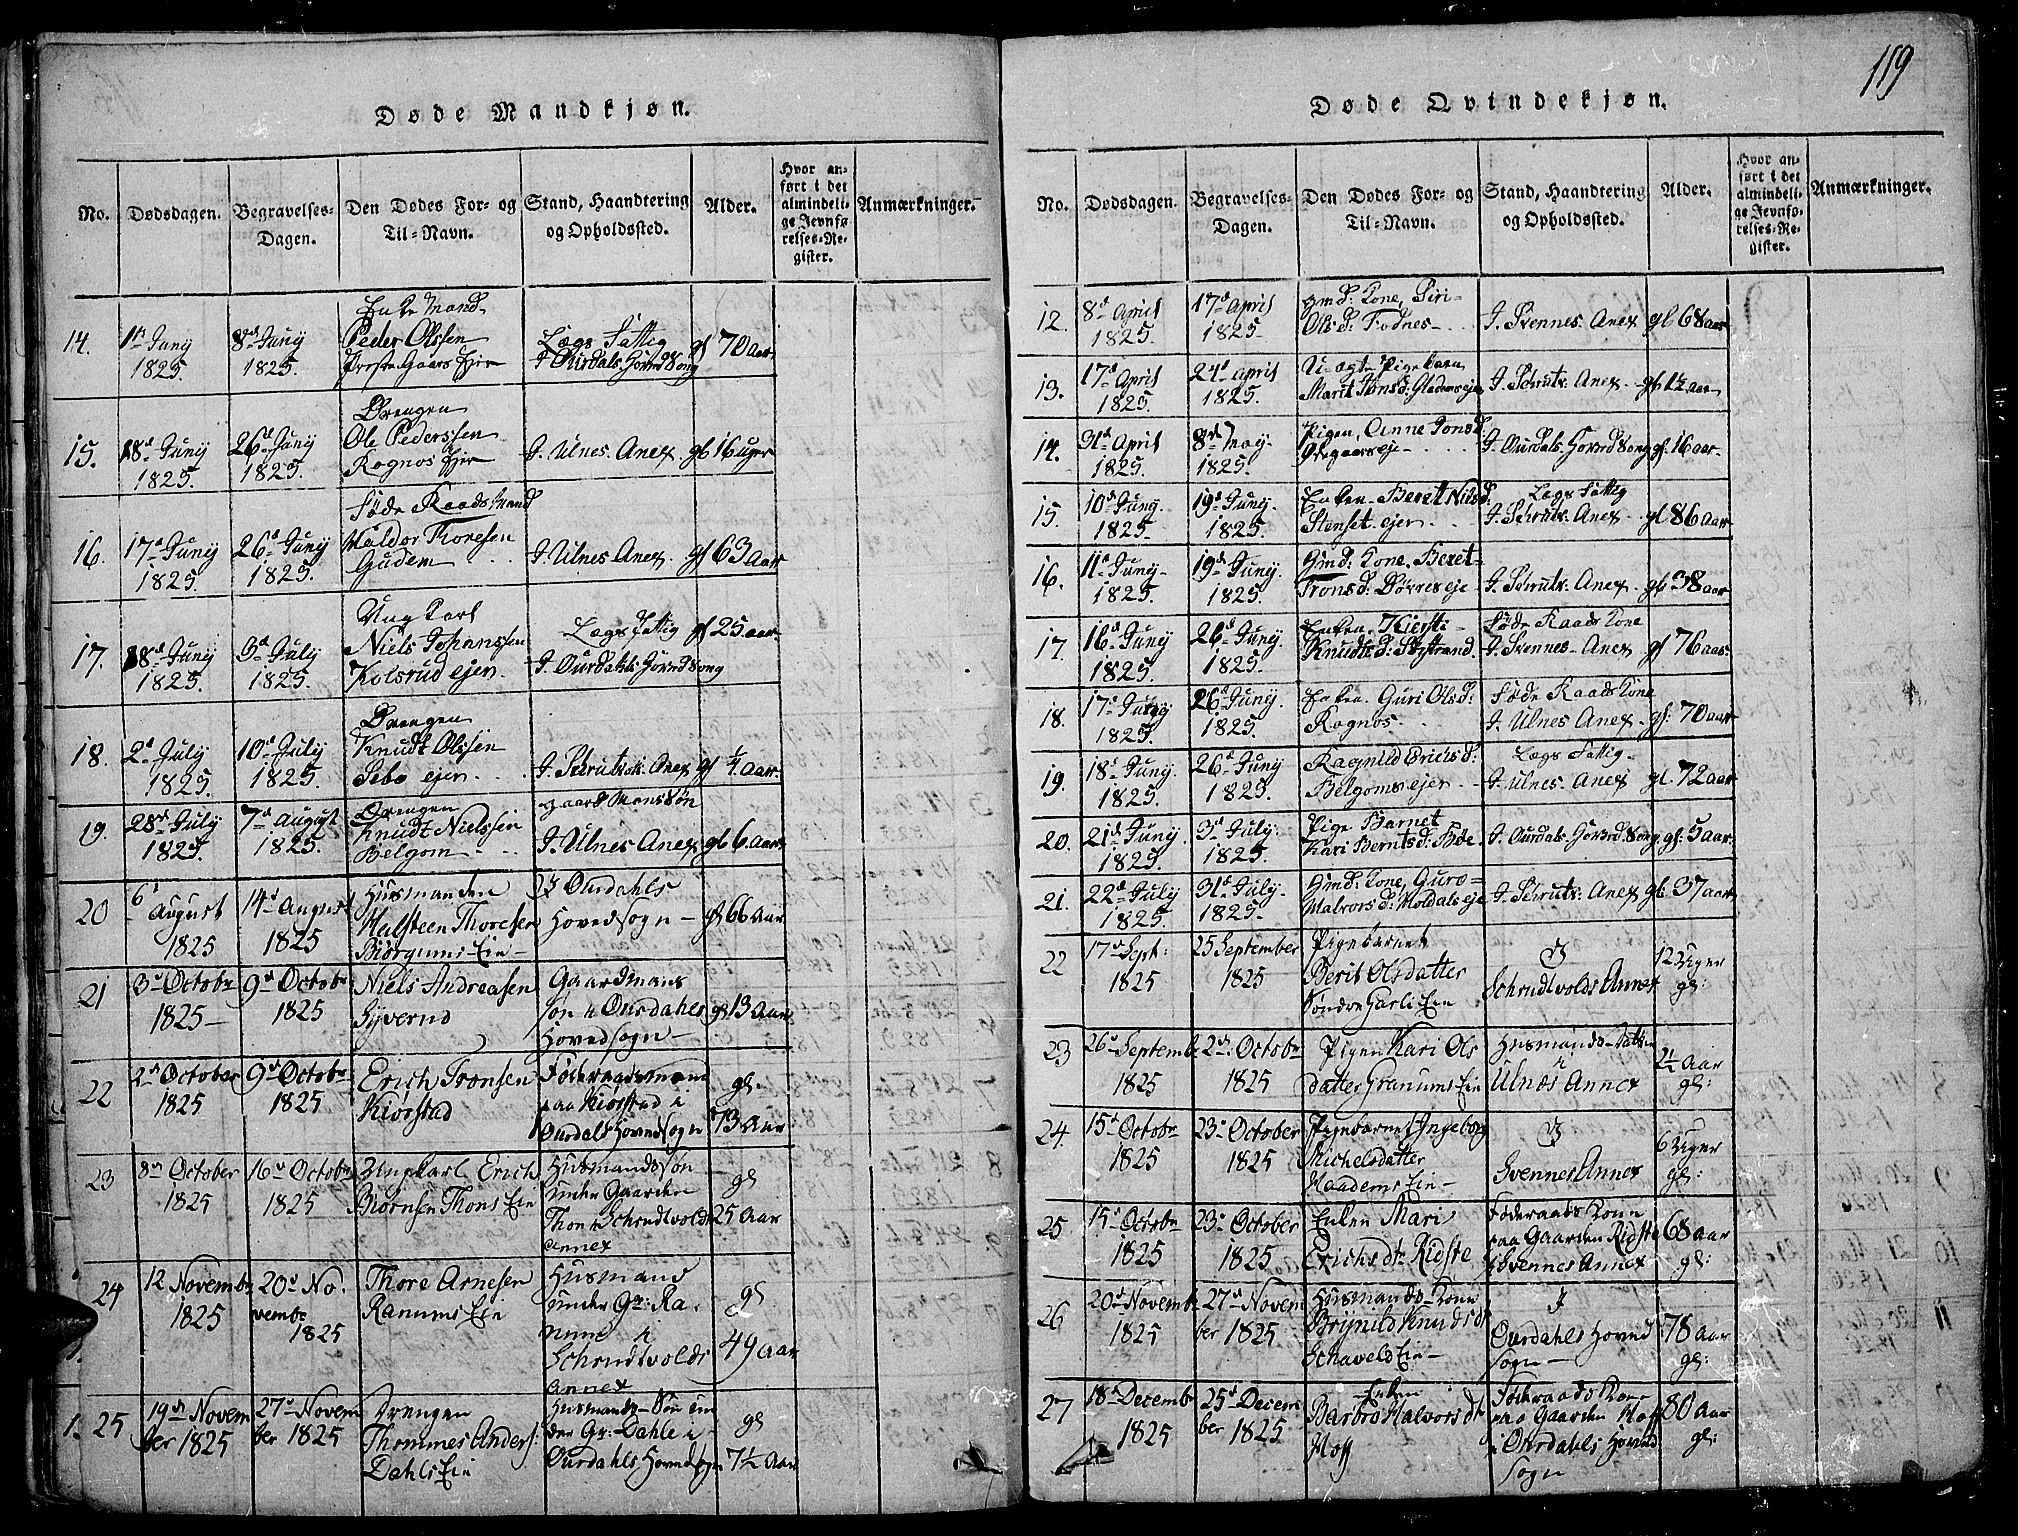 119
Døde Mandkjøn.
No. Dødsdagen. Begravelses-Dagen. Den Dødes For- og Til-Navn. Stand, Haandtering og Opholdssted. Alder. Hvor anført i det almindelige Jevnførelses-Register. Anmærkninger.
14. 1st Juny 1825. 8de Juny 1825. Enke Mand Peder Olssen Præste Gaars Ejer Lægs Fattig J Ourdals Hoved Sogn gl 70 aar
15. 18d Juny 1825. 26d Juny 1825. Drengen Ole Pederssen Rognos Ejer J. Ulnes Anex gl 16 uger
16. 17d Juny 1825. 26d Juny 1825. Føde Raads Mand Haldor Thoresen Gudem J. Ulnes Anex gl 63 Aar
17. 18d Juny 1825. 3d July 1825. Ung Karl Niels Johanssen Kolsrud ejer Lægs Fattig J. Ourdahls Hoved Sogn gl 25 aar
18. 2d July 1825. 10d July 1825. Drengen Knudt Olssen Sebo ejer J. Scrutvok Anex gl ¼ Aar
19. 28d July 1825. 7d August 1825. Drengen Knudt Nielssen Belgom gaard Mans Søn J. Ulnes Anex gl 6 Aar
20 6t August 1825 14d August 1825 Husmanden Halsteen Thoresen Biørgums Ein J Ourdahls Hovedsogn gl 66 Aar
21 3d October 1825 9d October 1825 Niels Andreasen Syverud Gaardmans Søn i Ourdahls Hovedsogn gl 13 Aar
22 2d October 1825 9d October 1825 Erich Tronsen Kiørstad Føderaadsmann paa Kiørstad i Ourdals Hovedsogn gl. 73 Aar
23 8d October 1825 16d October 1825 Ungkarl Erich Biørnsen Thons Ein Husmandssøn under Gaarden Thon i Schrudtvolds Annex gl 25 Aar
24 12 November 1825 20d November 1825 Thore Arnesen Ranums Ein Husmand under Gr: Ranum i Schrudtvolds Annex gl 49 Aar
25 19d November 1825 27d November 1825 Drengen Thommes Anders: Dahls Ein Husmands Søn under Gr: Dahle i Ourdahls Hovedsogn gl 7½ Aar
Døde Qvindekjøn.
No. Dødsdagen. Begravelses-Dagen. Den Dødes For- og Til-Navn. Stand, Haandtering og Opholdssted. Alder. Hvor anført i det almindelige Jevnførelses-Register. Anmærkninger.
12. 8d April 1825. 17d April 1825. Gmd: Kone, Siri Olsd: Fodnes J. Svennes Anex gl 68 aar
13. 17d April 1825. 24d April 1825. U-ægte Pige barn Marit Jonsd: Gladems eje J. Scrutv. Anex gl 1½ aar
14. 31d April 1825. 8d May 1825. Pigen, Anne Jonsd: Odegaars eje J. Ourdals Hoved Sogn gl. 16 aar
15. 10d Juny. 1825. 19d Juny. 1825. Enken Beret Nilsd: Stenset ejer Lægs Fattig J. Scrutv: Anex gl 86 Aar
16. 11d Juny 1825. 19d Juny. 1825. Gmd: Kone. Beret Tronsd: Døvres eje J. Scrutv: Anex gl 38 Aar
17. 16d Juny 1825. 26d Juny 1825. Enken. Kiersti Knudtsd: Strand Føde Raads Kone J. Svennes Anex gl 76 aar
18. 17d Juny 1825. 26d Juny. 1825. Enken. Guri Olsd: Rognos Føde Raads Kone J. Ulnes Anex gl: 70 aar
19. 18d Juny. 1825. 26d Juny 1825. Ragnild Erichsd: Belgoms ejer Lægs Fattig J. Ulnes Anex gl. 72 aar
20. 21d Juny 1825. 3d July. 1825. Pige Barnet Kari Berntsd: Bøde J. Ourdals Hoved Sogn gl: 5 aar
21. 22d July 1825. 31d July. 1825. Gmd: Kone, Guro Halvorsd: Moldals eje J. Scrutv: Anex gl. 37 aar
22 17d Sept: 1825 25 September 1825 Pigebarnet Berit Olsdatter Søndre Garli Ein J Schrudtvolds Annex 12 Uger gl:
23 26d September 1825 2d October 1825 Pigen Kari Olsdatter Granums Ein Husmands-Datter i Ulnæs Annex 21 Aar gl:
24 15d October 1825 23d October 1825 Pigebarnet Ingeborg Michelsdatter Haadems Ein J Svennes Annex 6 Uger gl:
25 15d October 1825 23d October 1825 Enken Mari Erichsdt: Ridste Føderaads Kone paa Gaarden Ridste i Svennes Annex 68 aar gl:
26 20d November 1825 27d November 1825 Husmands Kone Brynild Knudsdt Schaveld Ein J Ourdahls Hovedsogn 78 Aar gl:
27 18d December 1825 25d December 1825 Enken Barbro Halvorsdt Hoff Føderaads Kone paa Gaarden Hoff i Ourdahls Hovedsogn 80 Aar gl: